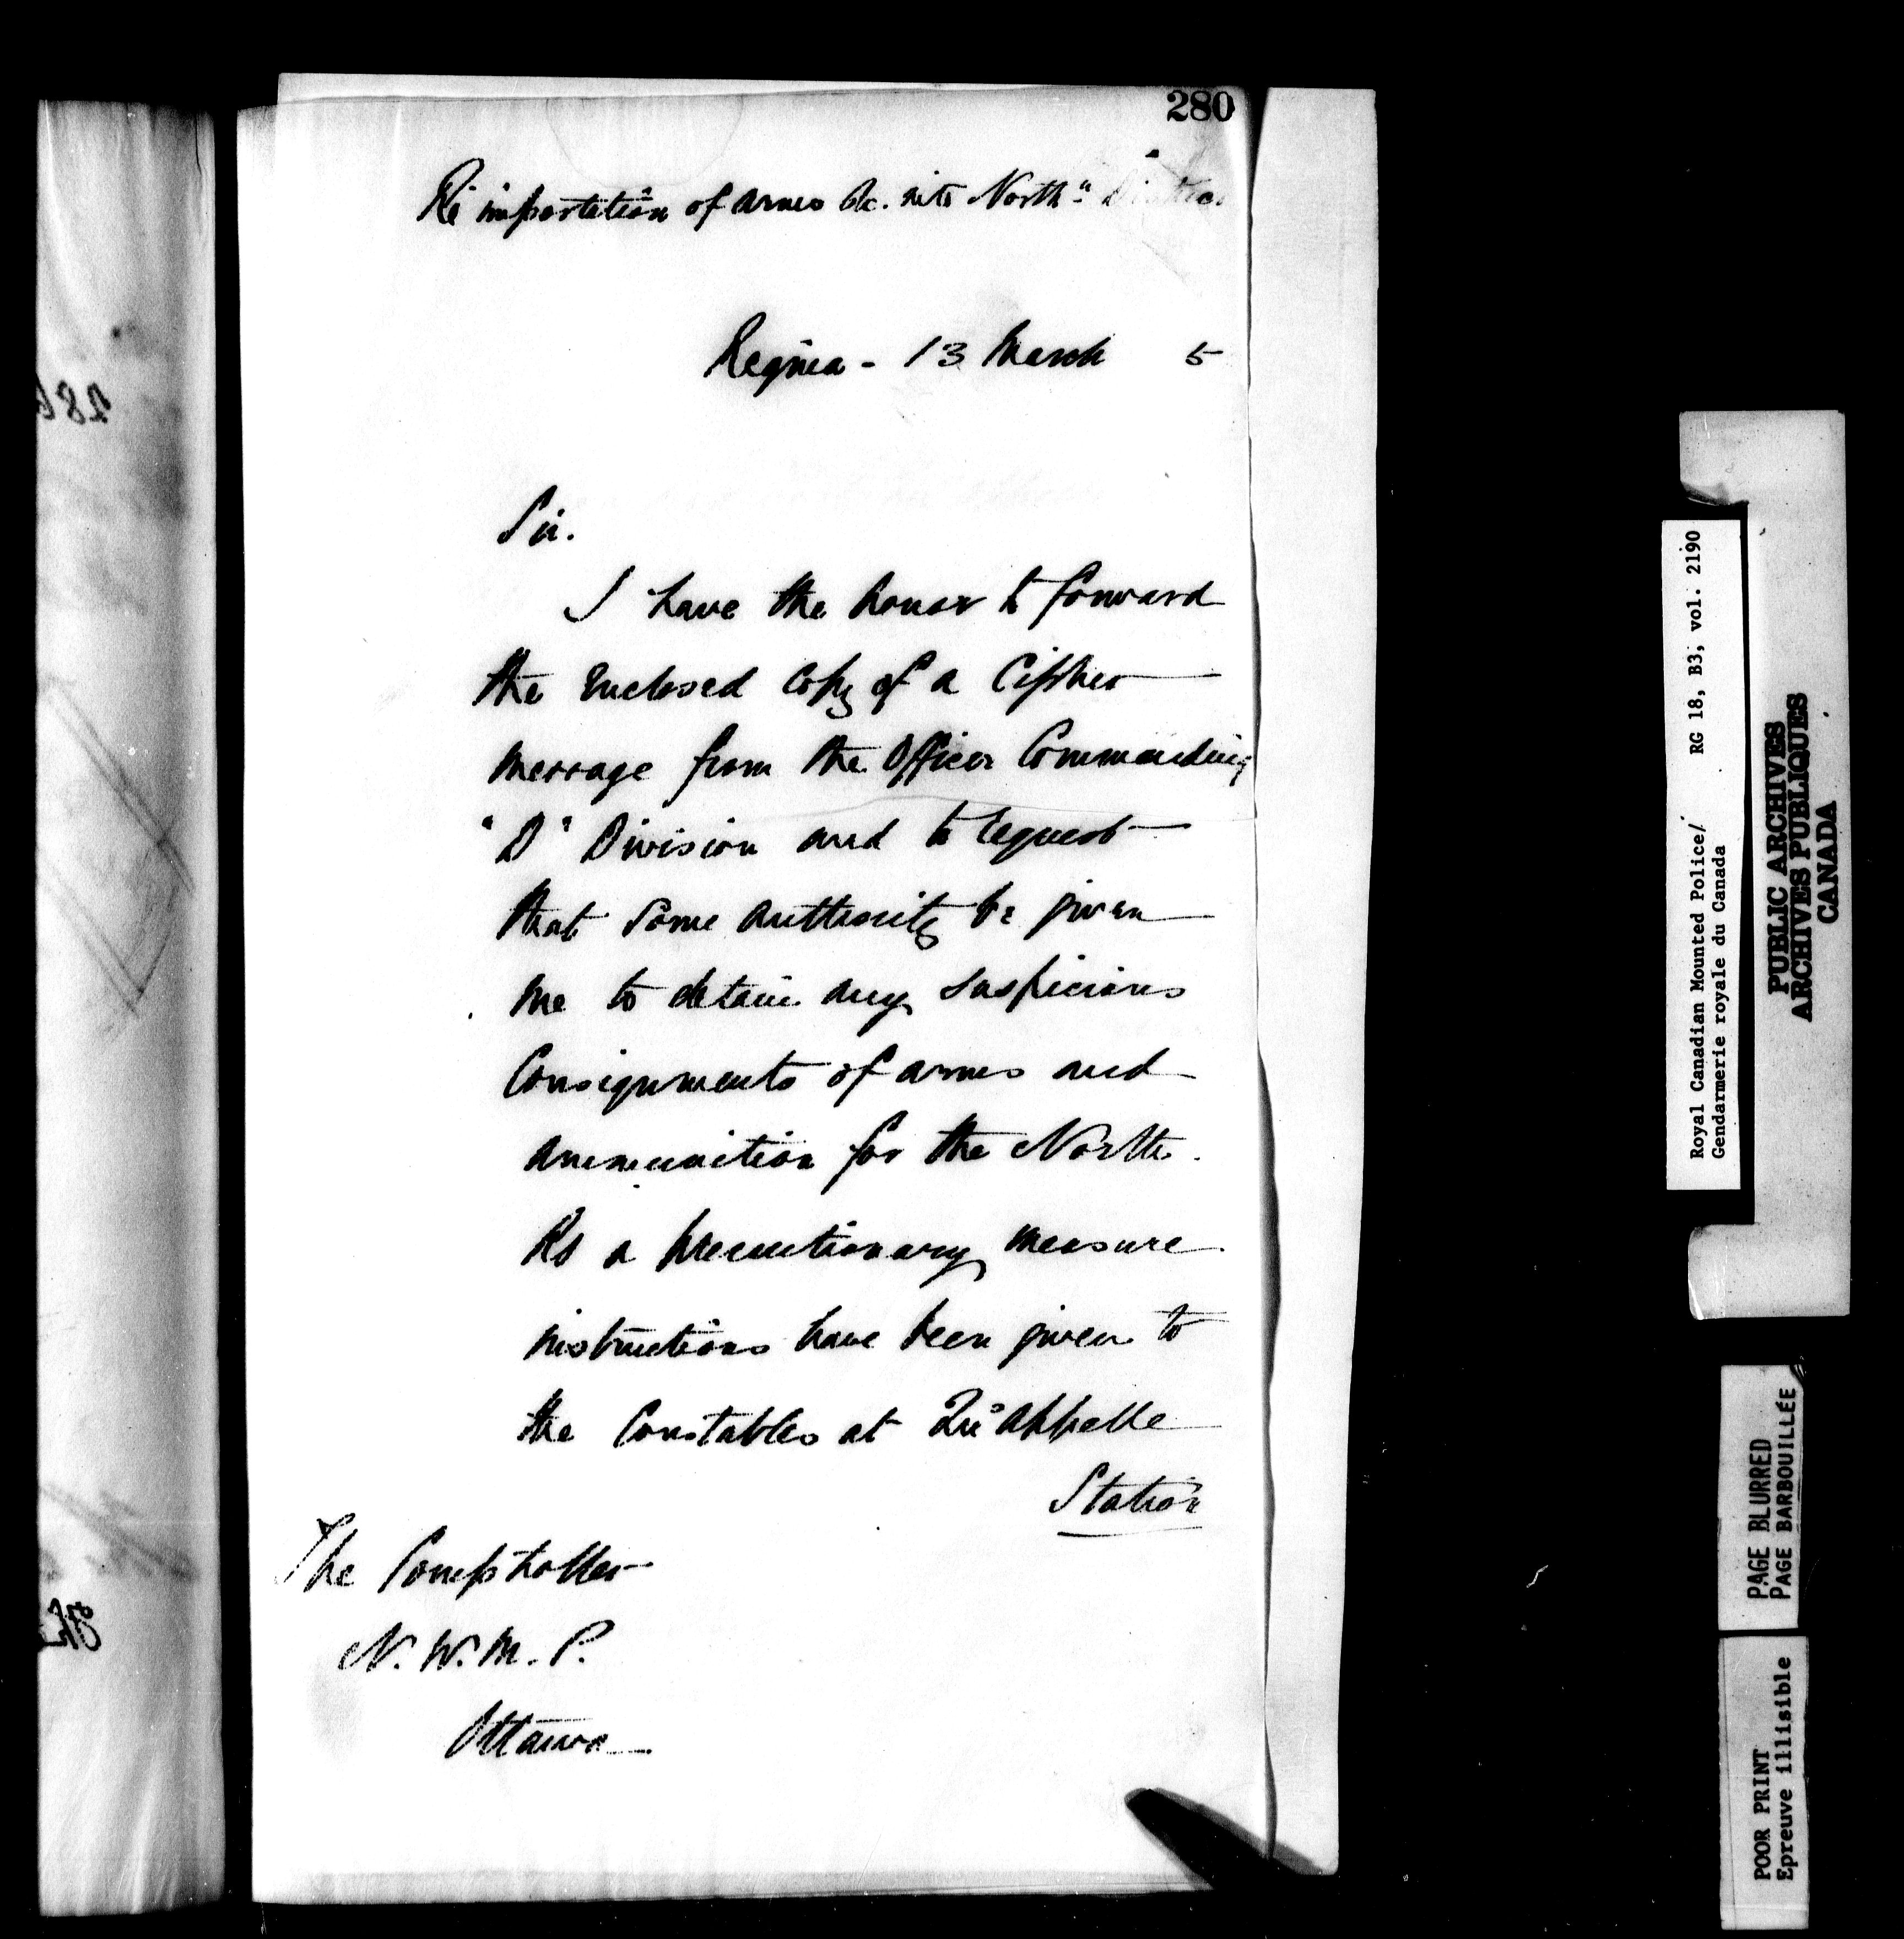 280
Re importation of arms &c. into North.n District
Regina - 13 March 5
Sir.
I have the honor to forward
the enclosed copy of a Cipher
message from the Officer Commanding
"D" Division and to request
that some authority be given
me to detain any suspicious
Consignments of arms and
ammunition for the North.
As a precautionary measure
instructions have been given to
the Constables at Qu'Appelle
Station
The Comptroller
N. W. M. P.
Ottawa
Royal Canadian Mounted Police/ RG 18, B3, vol. 2190
Gendarmerie royale du Canada
PUBLIC ARCHIVES
ARCHIVES PUBLIQUES
CANADA
PAGE BLURRED
PAGE BARBOUILLÉE
POOR PRINT
Epreuve illisible